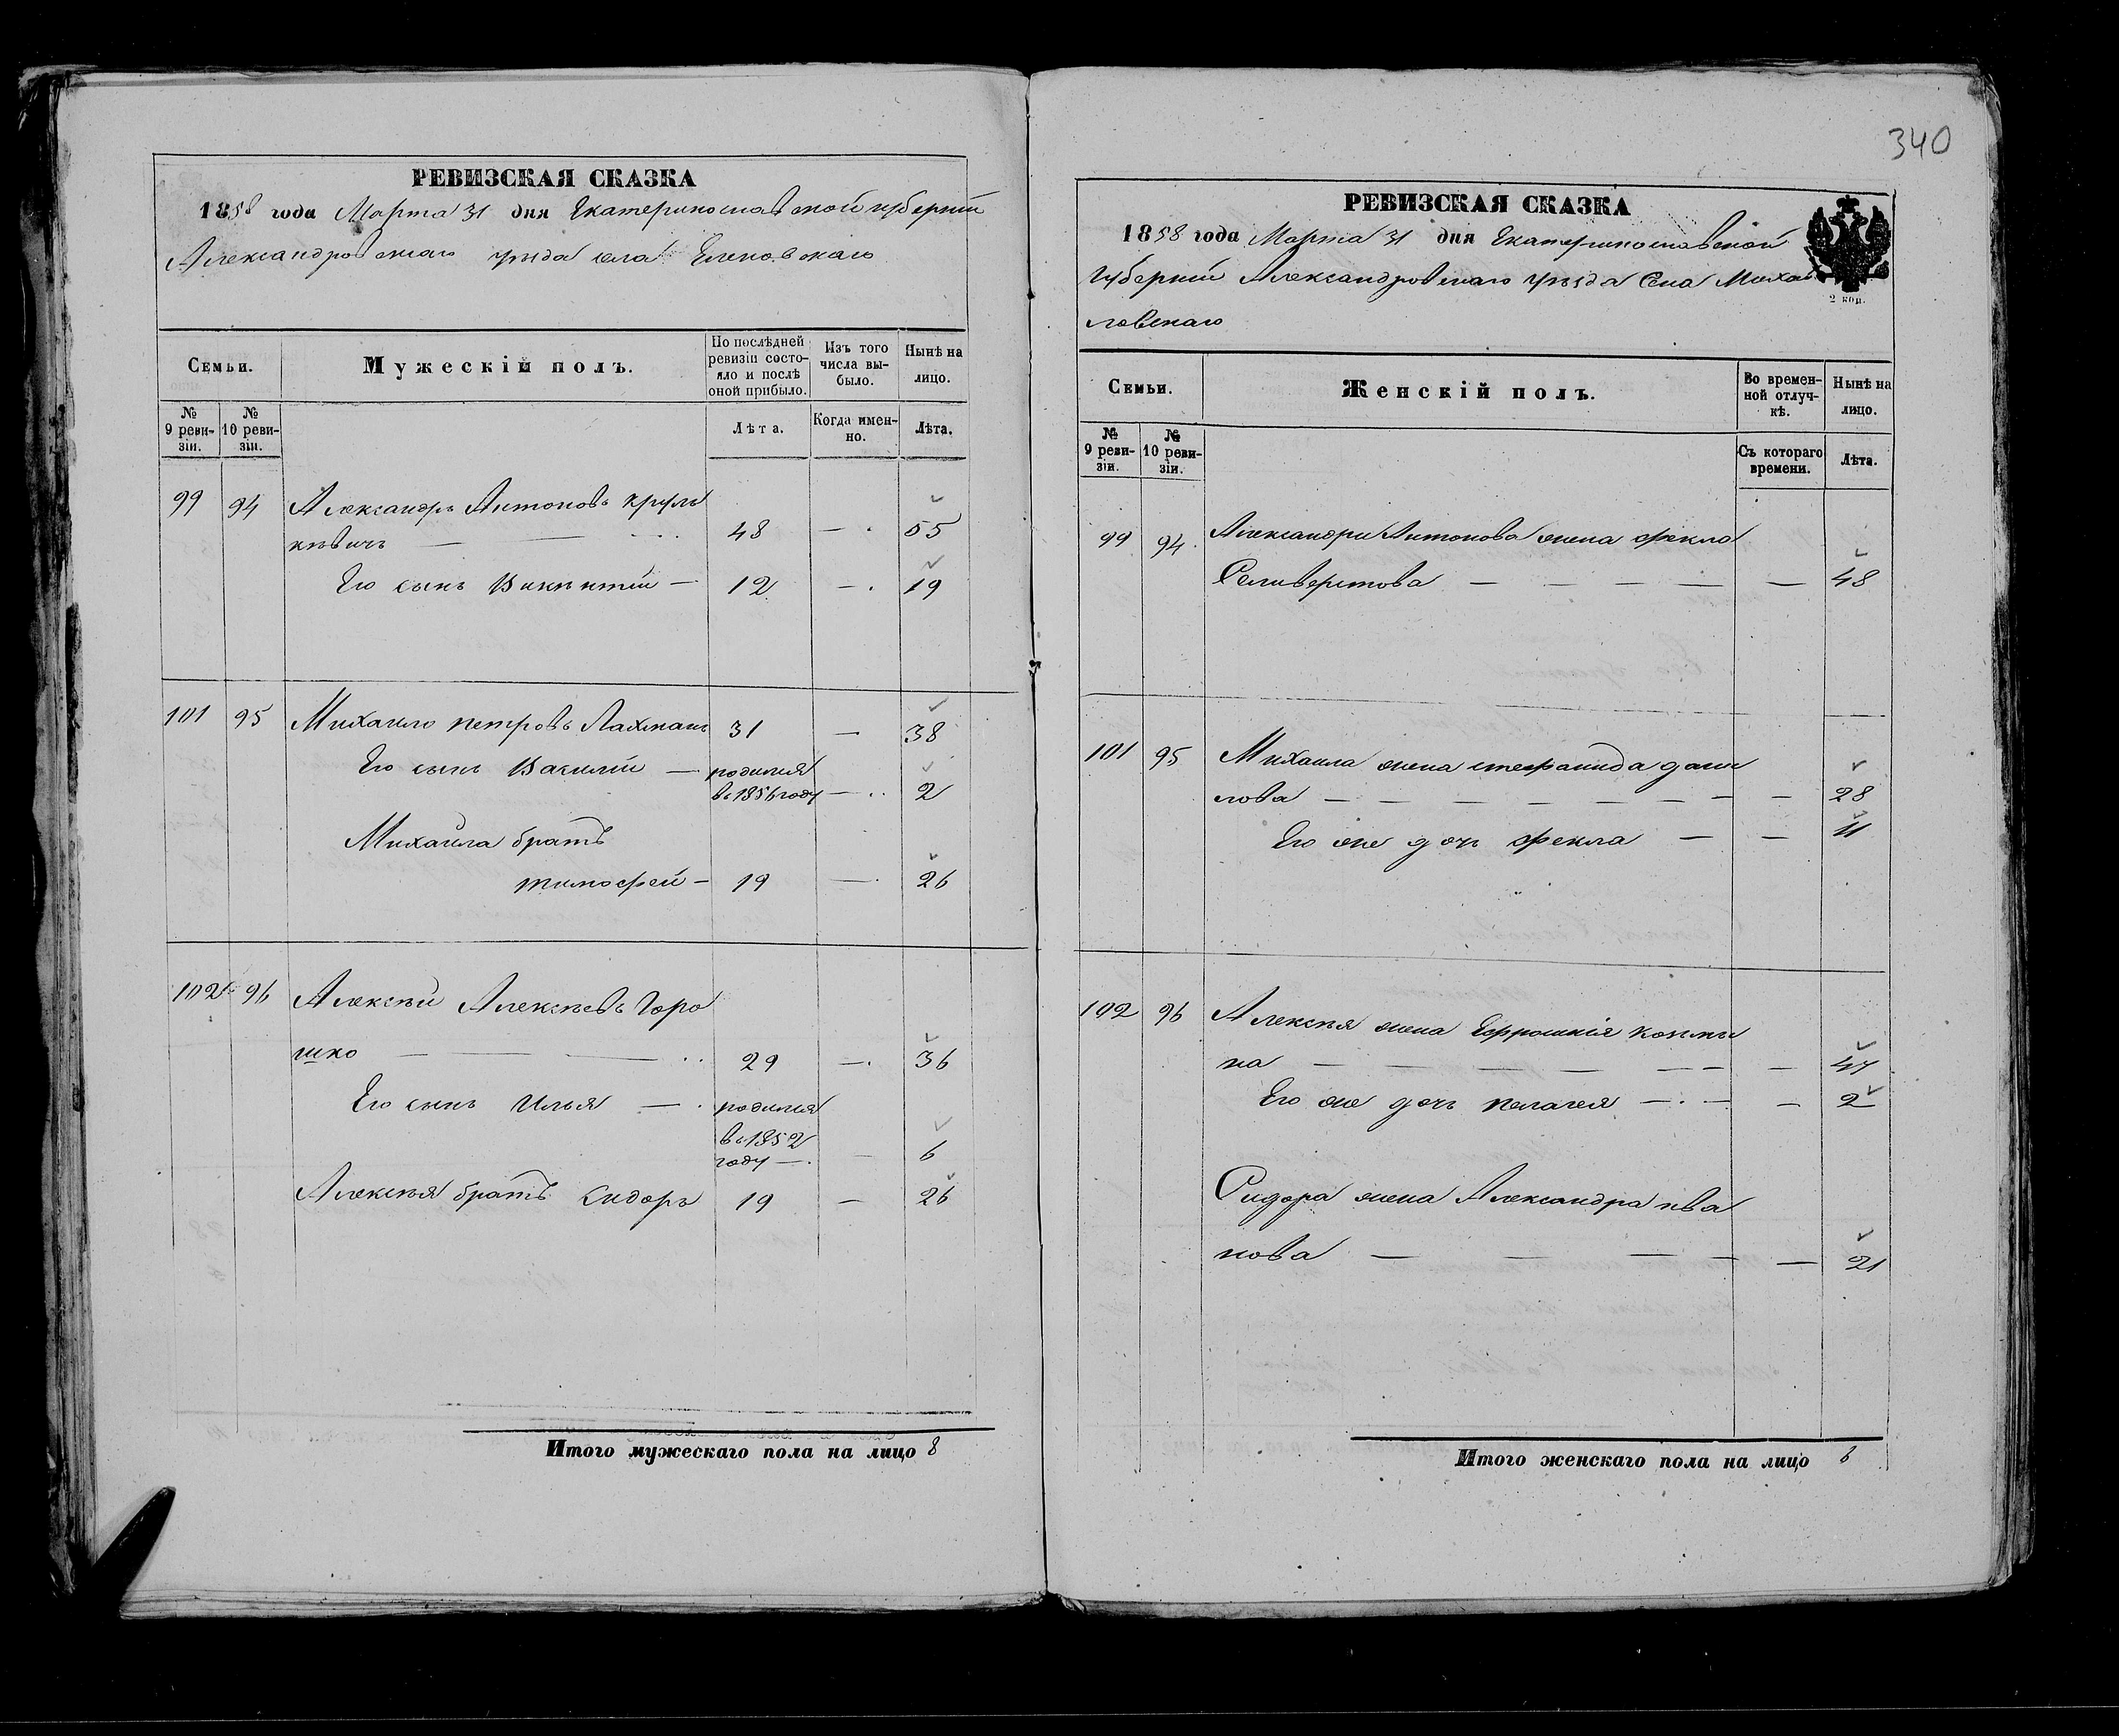 340
РЕВИЗСКАЯ СКАЗКА
1858 года Марта 31 дня Екатеринославской губерніи
Александровскаго уѣзда села Еленовскаго
Семьи.
Мужескій полъ.
По послѣдней ревизіи состояло и послѣ оной прибыло.
Изъ того числа выбыло.
Нынѣ на лицо.
№ 9 ревизіи.
№ 10 ревизіи.
Лѣта.
Когда именно.
Лѣта.
99 94 Александръ Антоновъ
кѣвичъ — 48 — 55
Его сынъ Викентій — 12 — 19
101 95 Михайло Петровъ Лахманъ 31 — 38
Его сынъ Василій — родился
въ 1856 году — 2
Михайла братъ
Тимофей — 19 — 26
102 96 Алексѣй Алексѣевъ Горо
шко — 29 — 36
Его сынъ Илья — родился
въ 1852
году — 6
Алексѣя братъ Сидоръ 19 — 26
Итого мужескаго пола на лицо 8
РЕВИЗСКАЯ СКАЗКА
1858 года Марта 31 дня Екатеринославской
губерніи Александровскаго уѣзда Села Михай
ловскаго
2 коп.
Семьи.
Женскій полъ.
Во временной отлучкѣ.
Нынѣ на лицо.
№ 9 ревизіи.
№ 10 ревизіи.
Съ котораго времени.
Лѣта.
99 94 Александра Антонова жена Фекла
Селиверстова — — 48
101 95 Михаила жена Стефанида Дани
лова — — 28
Его же дочь Фекла — — 11
102 96 Алексѣя жена Ефросинія Козьми
на — — 47
Его же дочь Пелагея — — 2
Сидора жена Александра Ива
нова — — 21
Итого женскаго пола на лицо 6